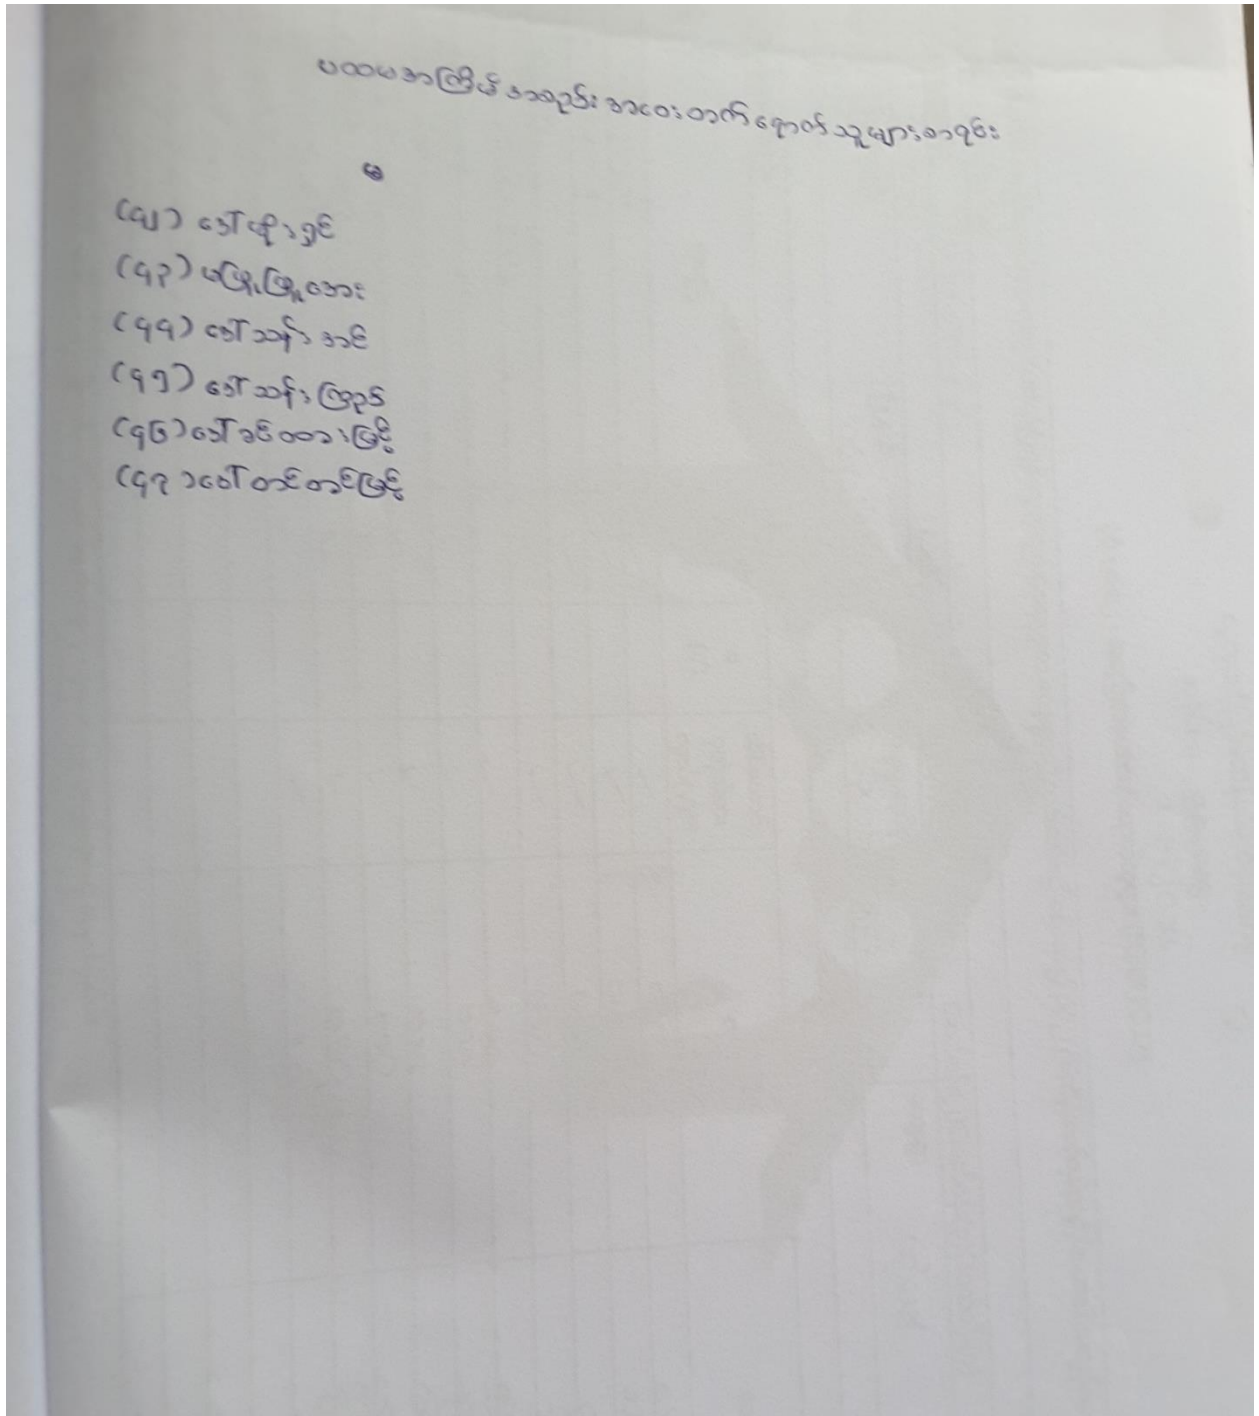 ပထမအကြိမ် အစည်း အဝေး တက်ရောက်သူများစာရင်း
မ
(၄၂) ဒေါ်ထိုးရှင်
(၄၃) မဖြူဖြူအေး
(၄၄) ဒေါ်သန်းအင်
(၄၅) ဒေါ်သန်းကြည်
(၄၆) ဒေါ်ခင်ထားမြင့်
(၄၇) ဒေါ်တင်တင်မြင့်